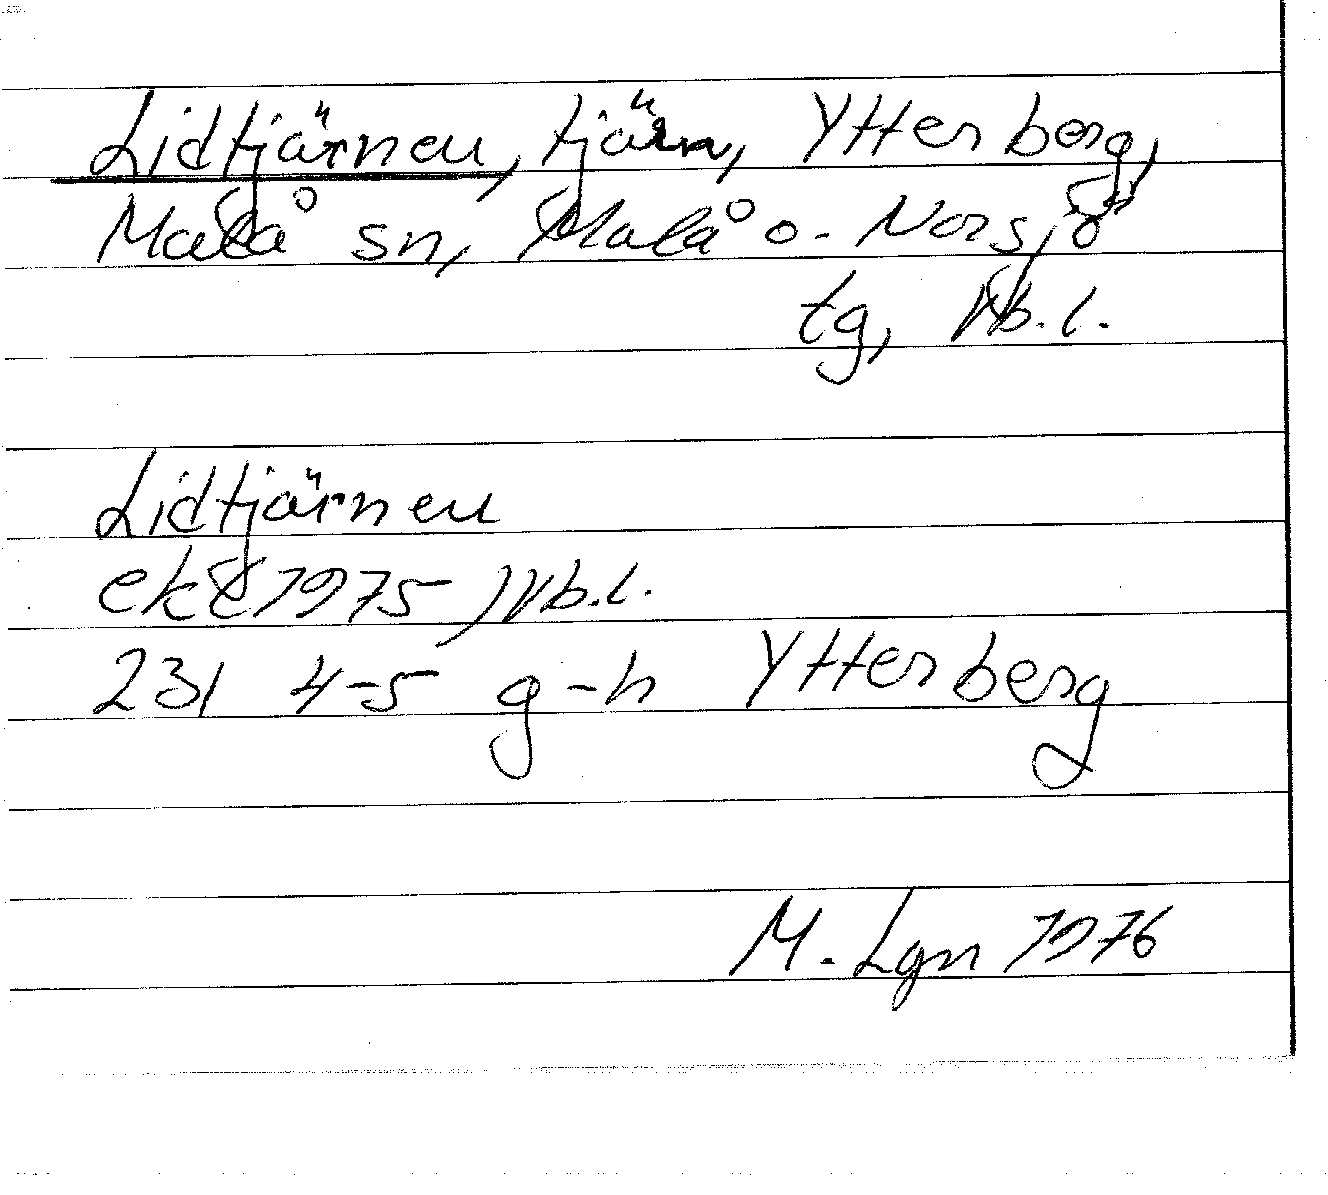 Lidtjärnen, tjärn, Ytterberg,
Malå sn, Malå o. Norsjö
tg, Vb.l.
Lidtjärnen
ekk 1975, Vb.l.
231 4-5 g-h Ytterberg
M. Lgn 1976